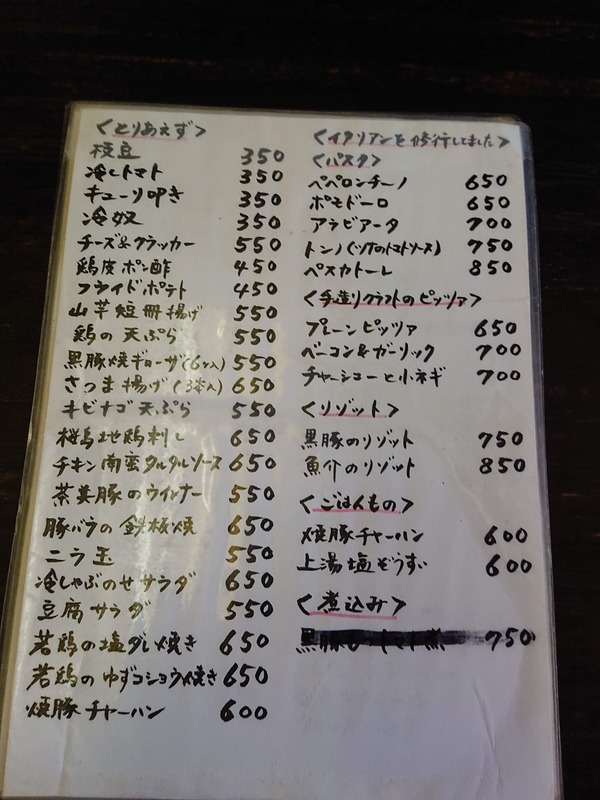 <とりあえず>
枝豆 350
冷しトマト 350
キューリ叩き 350
冷奴 350
チーズ&クラッカー 550
鶏皮ポン酢 450
フライドポテト 450
山芋短冊揚げ 550
鶏の天ぷら 550
黒豚焼ギョーザ(6ヶ入) 550
さつま揚げ(3本入) 650
キビナゴ天ぷら 550
桜島地鶏刺し 650
チキン南蛮タルタルソース 650
茶美豚のウインナー 550
豚バラの鉄板焼 650
ニラ玉 550
冷しゃぶのせサラダ 650
豆腐サラダ 550
若鶏の塩ダレ焼き 650
若鶏のゆずコショウ焼き 650
焼豚チャーハン 600
<イタリアンを修行してました>
<パスタ>
ペペロンチーノ 650
ポモドーロ 650
アラビアータ 700
トンノ(ツナのトマトソース) 750
ペスカトーレ 850
<手造りクラフトのピッツァ>
プレーンピッツァ 650
ベーコン&ガーリック 700
チャーシューと小ネギ 700
<リゾット>
黒豚のリゾット 750
魚介のリゾット 850
<ごはんもの>
焼豚チャーハン 600
上湯塩ぞうすい 600
<煮込み>
黒豚 トマト煮 750